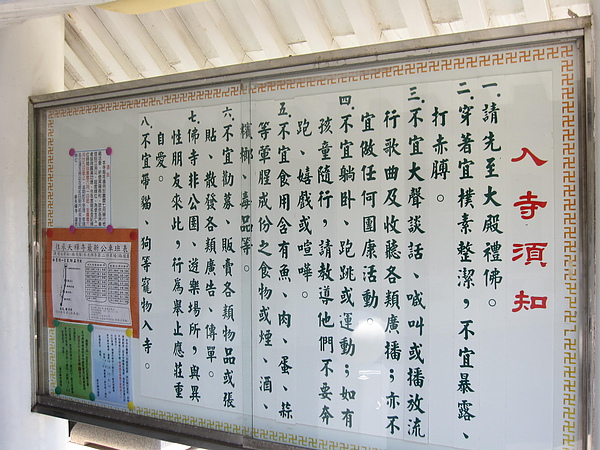 入寺須知
一.請先至大殿禮佛。
二.穿著宜樸素整潏,不宜暴露、
打赤膊。
三.不宜大聲談話、喊叫或播放流
行歌曲及收聽各類廣播;亦不
宜做任何團康活動。
四.不宜躺卧、跑跳或運動;如有
孩童隨行,請教導他們不要奔
跑、嬉戲或喧嘩。
五.不宜食用含有魚、肉、蛋、蒜
等葷腥成份之食物或煙、酒、
檳榔、毒品等。
六.不宜勸募、販賣各類物品或張
貼、散發各類廣告、傳單。
七.佛寺非公園、遊樂場所,與異
性朋友來此,行為舉止應莊重
自愛。
八.不宜帶貓、狗等寵物入寺。
往承天禪寺最新公車班表